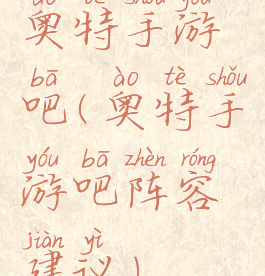 ào tè shǒu yóu
奥特手游
bā ào tè shǒu
吧(奥特手
yóu bā zhèn róng
游吧阵容
jiàn yì
建议)